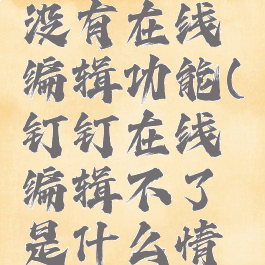 没有在线
编辑功能(
钉钉在线
编辑不了
是什么情